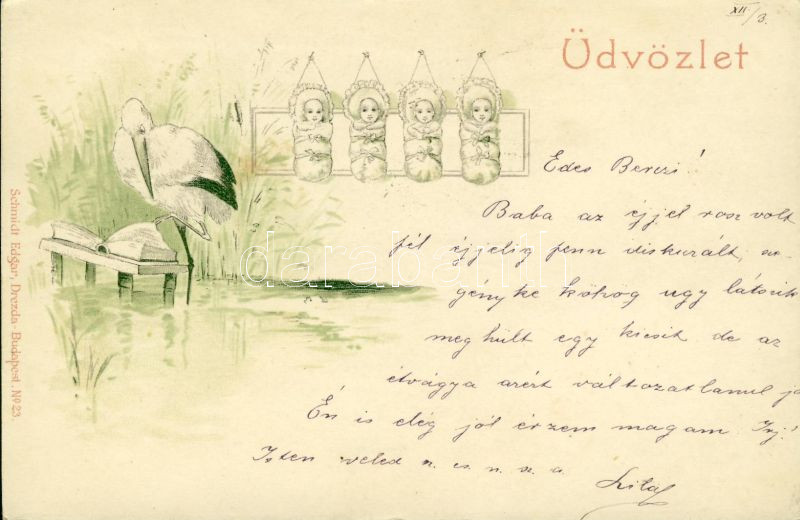 XII/3.
Üdvözlet
Édes Berczi!
Baba az éjjel rosz volt
fél éjjelig fenn diskurált, sze-
gényke köhög ugy látszik
meghült egy kicsit de az
étvágya azért változatlanul jó
Én is elég jól érzem magam. Irj!
Isten veled n. cs. n. sz. a.
Schmidt Edgar, Drezda - Budapest. No 23
darabanth